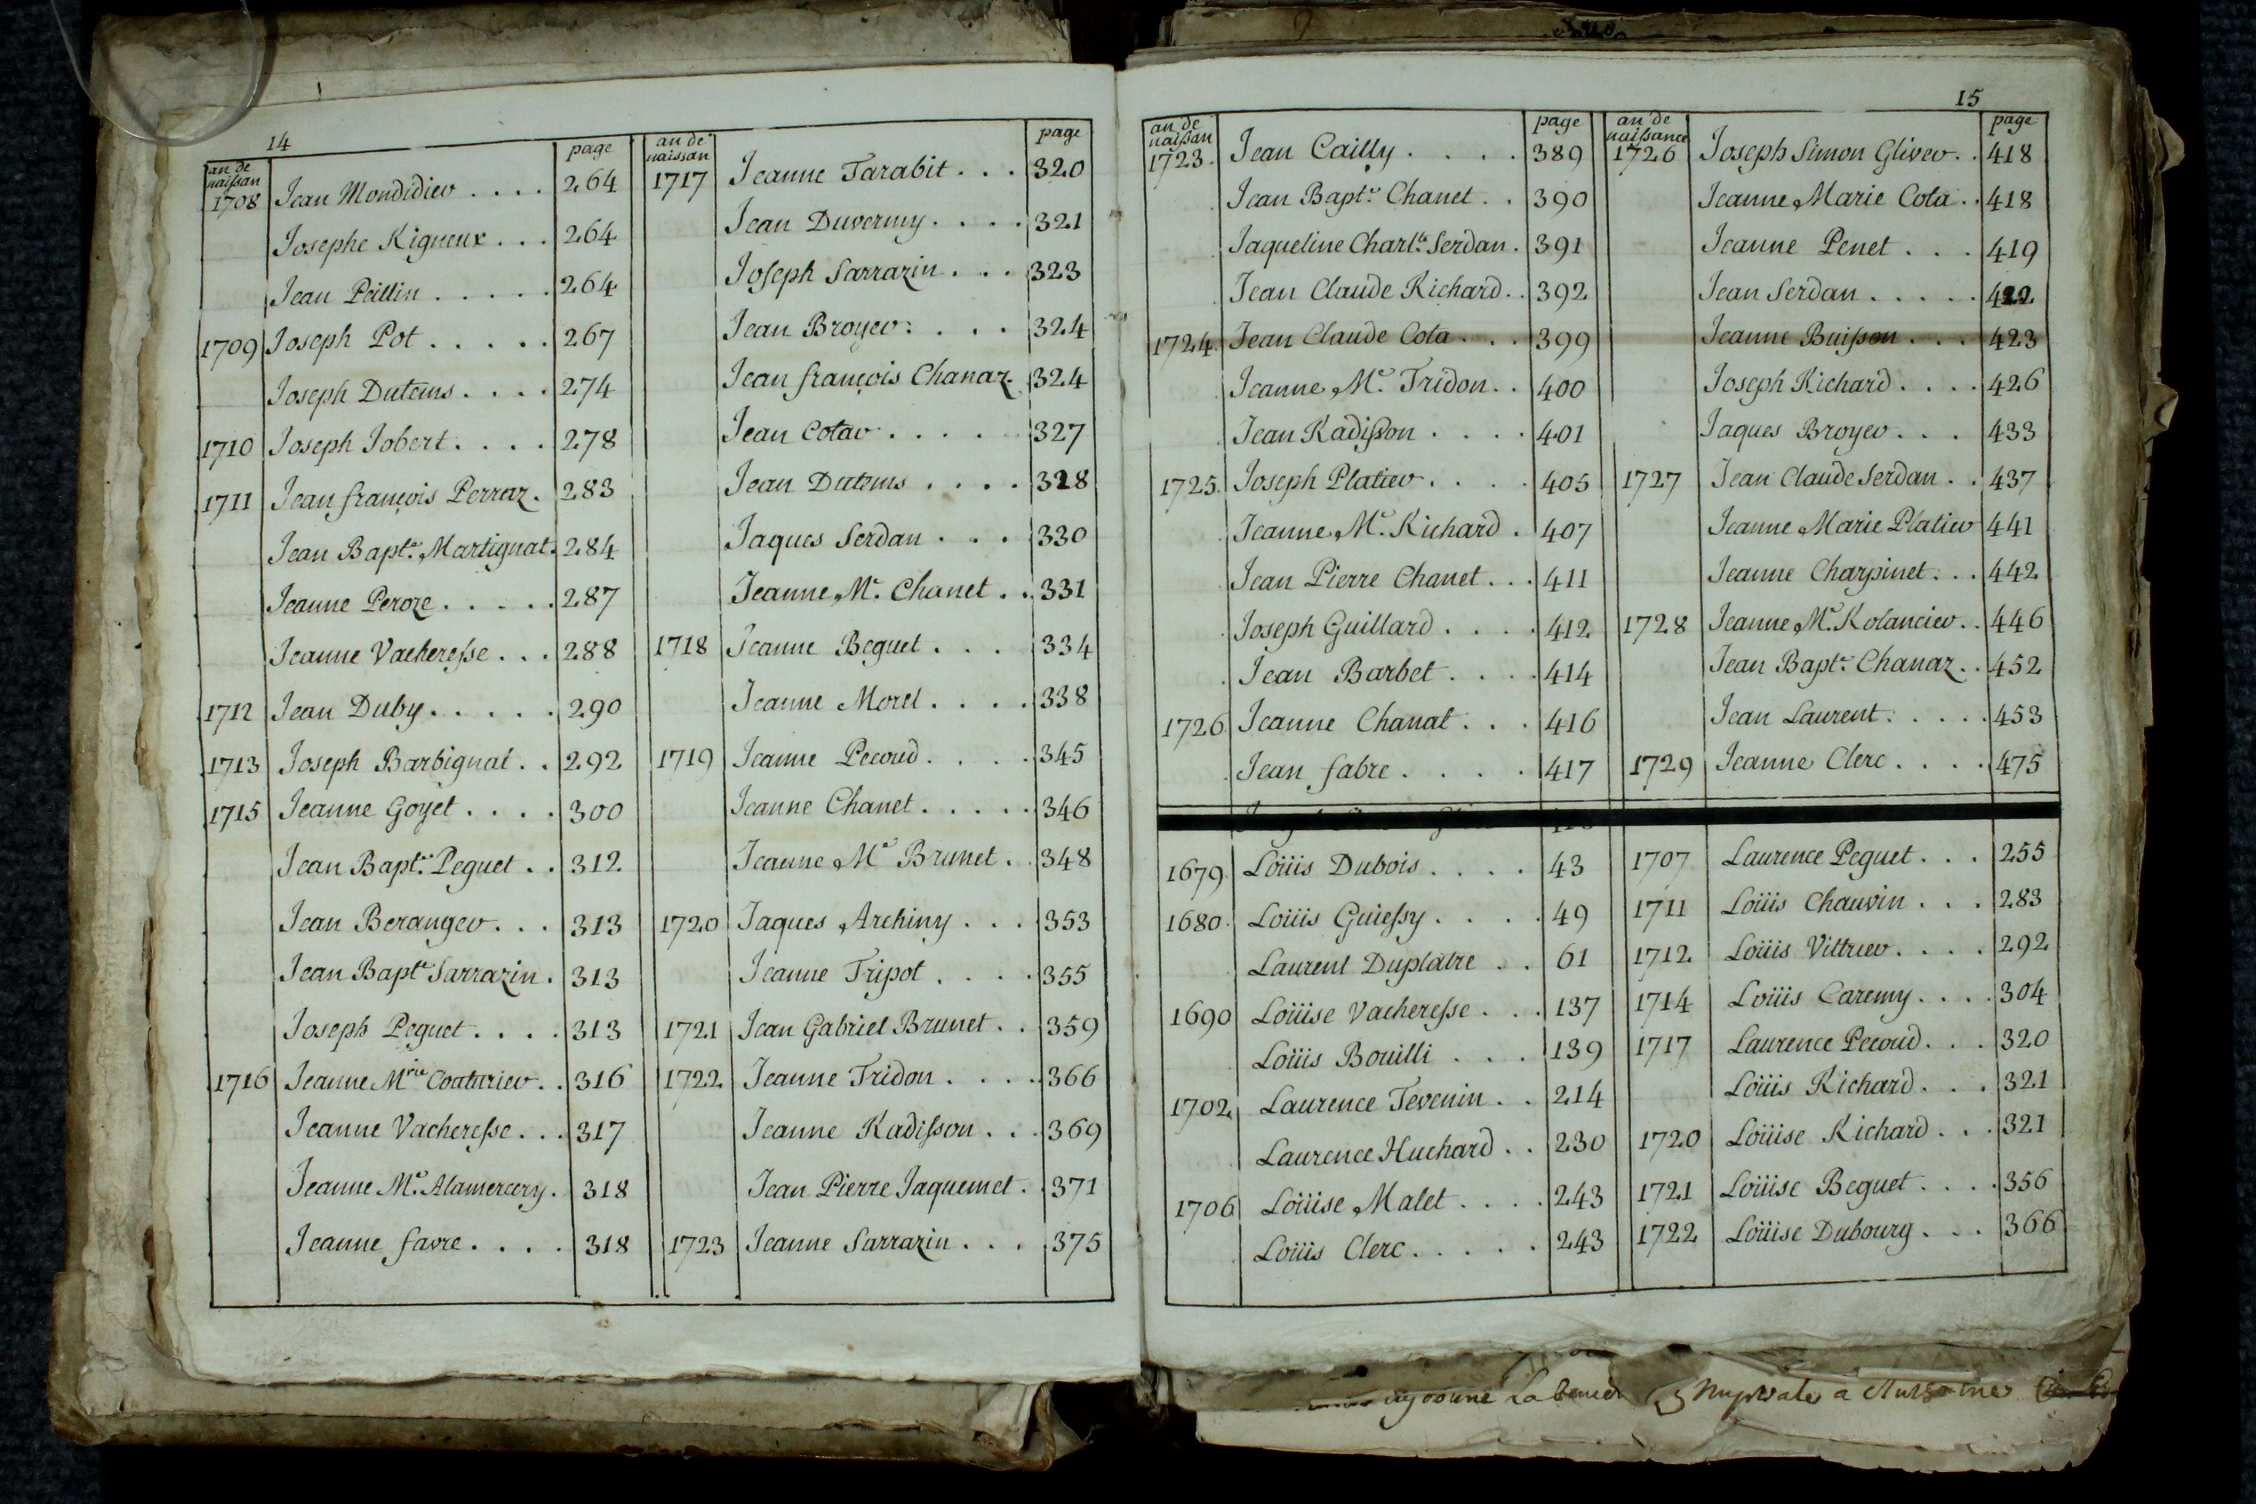 14
an de naissan page
1708 Jean Mondidier . . . . 264
Josephe Rigneux . . . 264
Jean Peillin . . . . . 264
1709 Joseph Pot . . . . . 267
Joseph Dutems . . . . 274
1710 Joseph Jobert . . . . 278
1711 Jean françois Perraz . 283
Jean Bapt.e Martignat . 284
Jeanne Peroze . . . . . 287
Jeanne Vacheresse . . . 288
1712 Jean Duby . . . . . 290
1713 Joseph Barbignat . . 292
1715 Jeanne Goyet . . . . 300
Jean Bapt.e Peguet . . 312
Jean Beranger . . . 313
Jean Bapt.e Sarrazin . 313
Joseph Peguet . . . . 313
1716 Jeanne M.rie Couturier . . 316
Jeanne Vacheresse . . . 317
Jeanne M.e Alamercery . 318
Jeanne favre . . . . 318
an de naissan page
1717 Jeanne Tarabit . . . 320
Jean Duvermy . . . . 321
Joseph Sarrazin . . . 323
Jean Broyer . . . . 324
Jean françois Chanaz . 324
Jean Cotar . . . . . 327
Jean Dutems . . . . 328
Jaques Serdan . . . 330
Jeanne M.e Chanet . . 331
1718 Jeanne Beguet . . . 334
Jeanne Morel . . . . 338
1719 Jeanne Pecoud . . . . 345
Jeanne Chanet . . . . . 346
Jeanne M.e Brunet . . 348
1720 Jaques Archiny . . . 353
Jeanne Tripot . . . . 355
1721 Jean Gabriel Brunet . . 359
1722 Jeanne Tridon . . . . 366
Jeanne Radisson . . . 369
Jean Pierre Jaquemet . . 371
1723 Jeanne Sarrazin . . . 375
15
an de naissan page
1723 Jean Cailly . . . . 389
Jean Bapt.e Chanet . . 390
Jaqueline Charl.te Serdan . 391
Jean Claude Richard . . 392
1724 Jean Claude Cota . . . 399
Jeanne M.e Tridon . . 400
Jean Radisson . . . . 401
1725 Joseph Platier . . . . 405
Jeanne M.e Richard . 407
Jean Pierre Chanet . . . 411
Joseph Guillard . . . . 412
Jean Barbet . . . . 414
1726 Jeanne Chanat . . . 416
Jean fabre . . . . . 417
an de naissance page
1726 Joseph Simon Gliver . . 418
Jeanne Marie Cota . . 418
Jeanne Penet . . . 419
Jean Serdan . . . . .
Jeanne Buisson . . . 423
Joseph Richard . . . . 426
Jaques Broyer . . . 433
1727 Jean Claude Serdan . . 437
Jeanne Marie Platier 441
Jeanne Charpinet . . . 442
1728 Jeanne M.e Rolancier . . 446
Jean Bapt.e Chanaz . . 452
Jean Laurent . . . . . 453
1729 Jeanne Clerc . . . . 475
1679 Loüis Dubois . . . . 43
1680 Loüis Guiessy . . . . 49
Laurent Duplatre . . 61
1690 Loüise Vacheresse . . . 137
Loüis Bouilli . . . 139
1702 Laurence Tevenin . . 214
Laurence Huchard . . 230
1706 Loüise Malet . . . . 243
Loüis Clerc . . . . . 243
1707 Laurence Peguet . . . 255
1711 Loüis Chauvin . . . 283
1712 Loüis Vittrier . . . . 292
1714 Loüis Caremy . . . . 304
1717 Laurence Pecoud . . . 320
Loüis Richard . . . 321
1720 Loüise Richard . . . 321
1721 Loüise Beguet . . . . 356
1722 Loüise Dubourg . . . 366